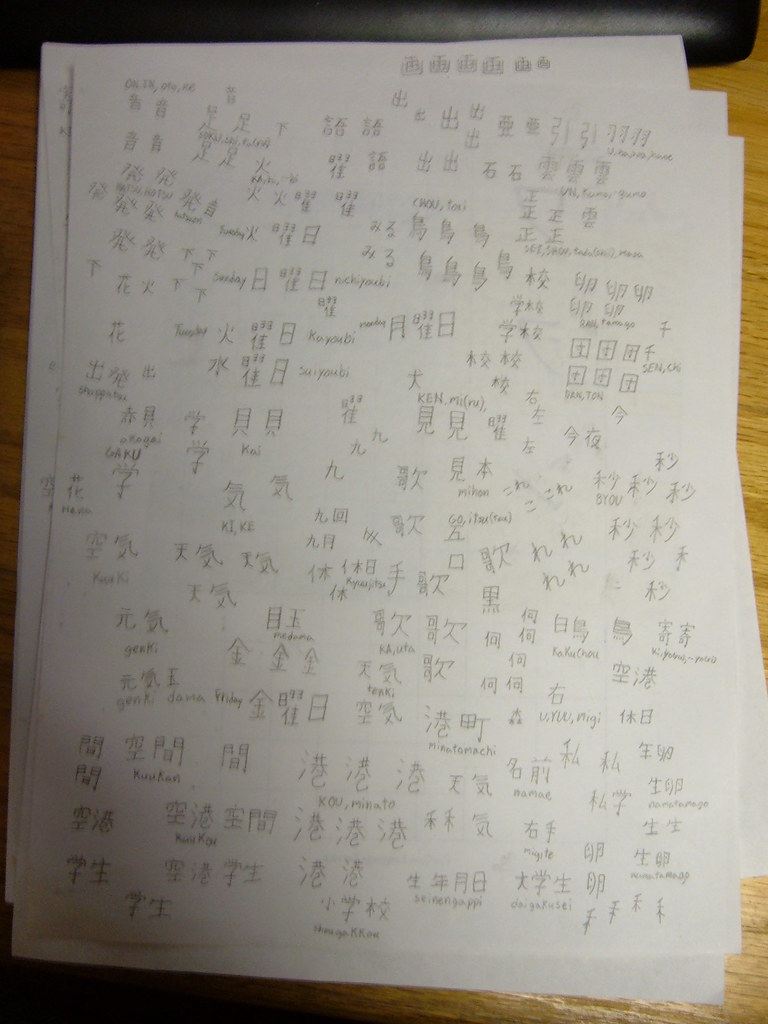 画画画画画画
音音 足足 下 語語 出出出出 亜亜引引羽羽羽
音音 足足火 曜語 出出 石石雲雲雲
発発発発音 火火曜曜 CHOU, tori 正
Tuesday 火曜日 みる鳥鳥鳥 正正雲
発発下下 みる鳥鳥鳥鳥 正正
下花火下下下 Sunday 日曜日 nichiyoubi 校 卵卵卵
曜 学校 卵卵
花 Tuesday 火曜日 Kayoubi monday 月曜日 学校 RAN, tamago 千
出発出 水曜日 suiyoubi 校校 団団団千
shuppatsu 犬 校 団団団 SEN, chi
KEN, mi(ru), 右 DAN, TON
赤貝 学 貝貝 曜 見見曜 左 今
akagai Kai 九九 左 今夜
GAKU
学 学 気気 九 歌 見本 これこれ 秒秒秒秒
花 mihon BYOU
hana KI, KE 九回 歌 GO, itsu(tsu)
空気 天気天気 九月 五 秒秒
Kuuki 休休日手 口歌 れれ 秒
天気 休 Kyuujitsu 歌 れれ 秒
黒
元気 目玉 歌歌 何何何 白鳥鳥 寄寄
genki medama KA, uta hakuchou
金金金 天気歌 何 空港
元気玉 tenki 何何
genki dama Friday 金曜日 空気 港町 森 右 休日
minatomachi U, YUU, migi
間空間間 港港港 天気 名前 私私 生卵
間 Kuukan KOU, minato namae 私学 生卵
空港 空港空間 港港港 気 右手 namatamago
Kuukou migite 卵 生生
学生 空港学生 港港 生年月日 大学生 卵 生卵
seinengappi daigakusei namatamago
学生 小学校
shougakkou